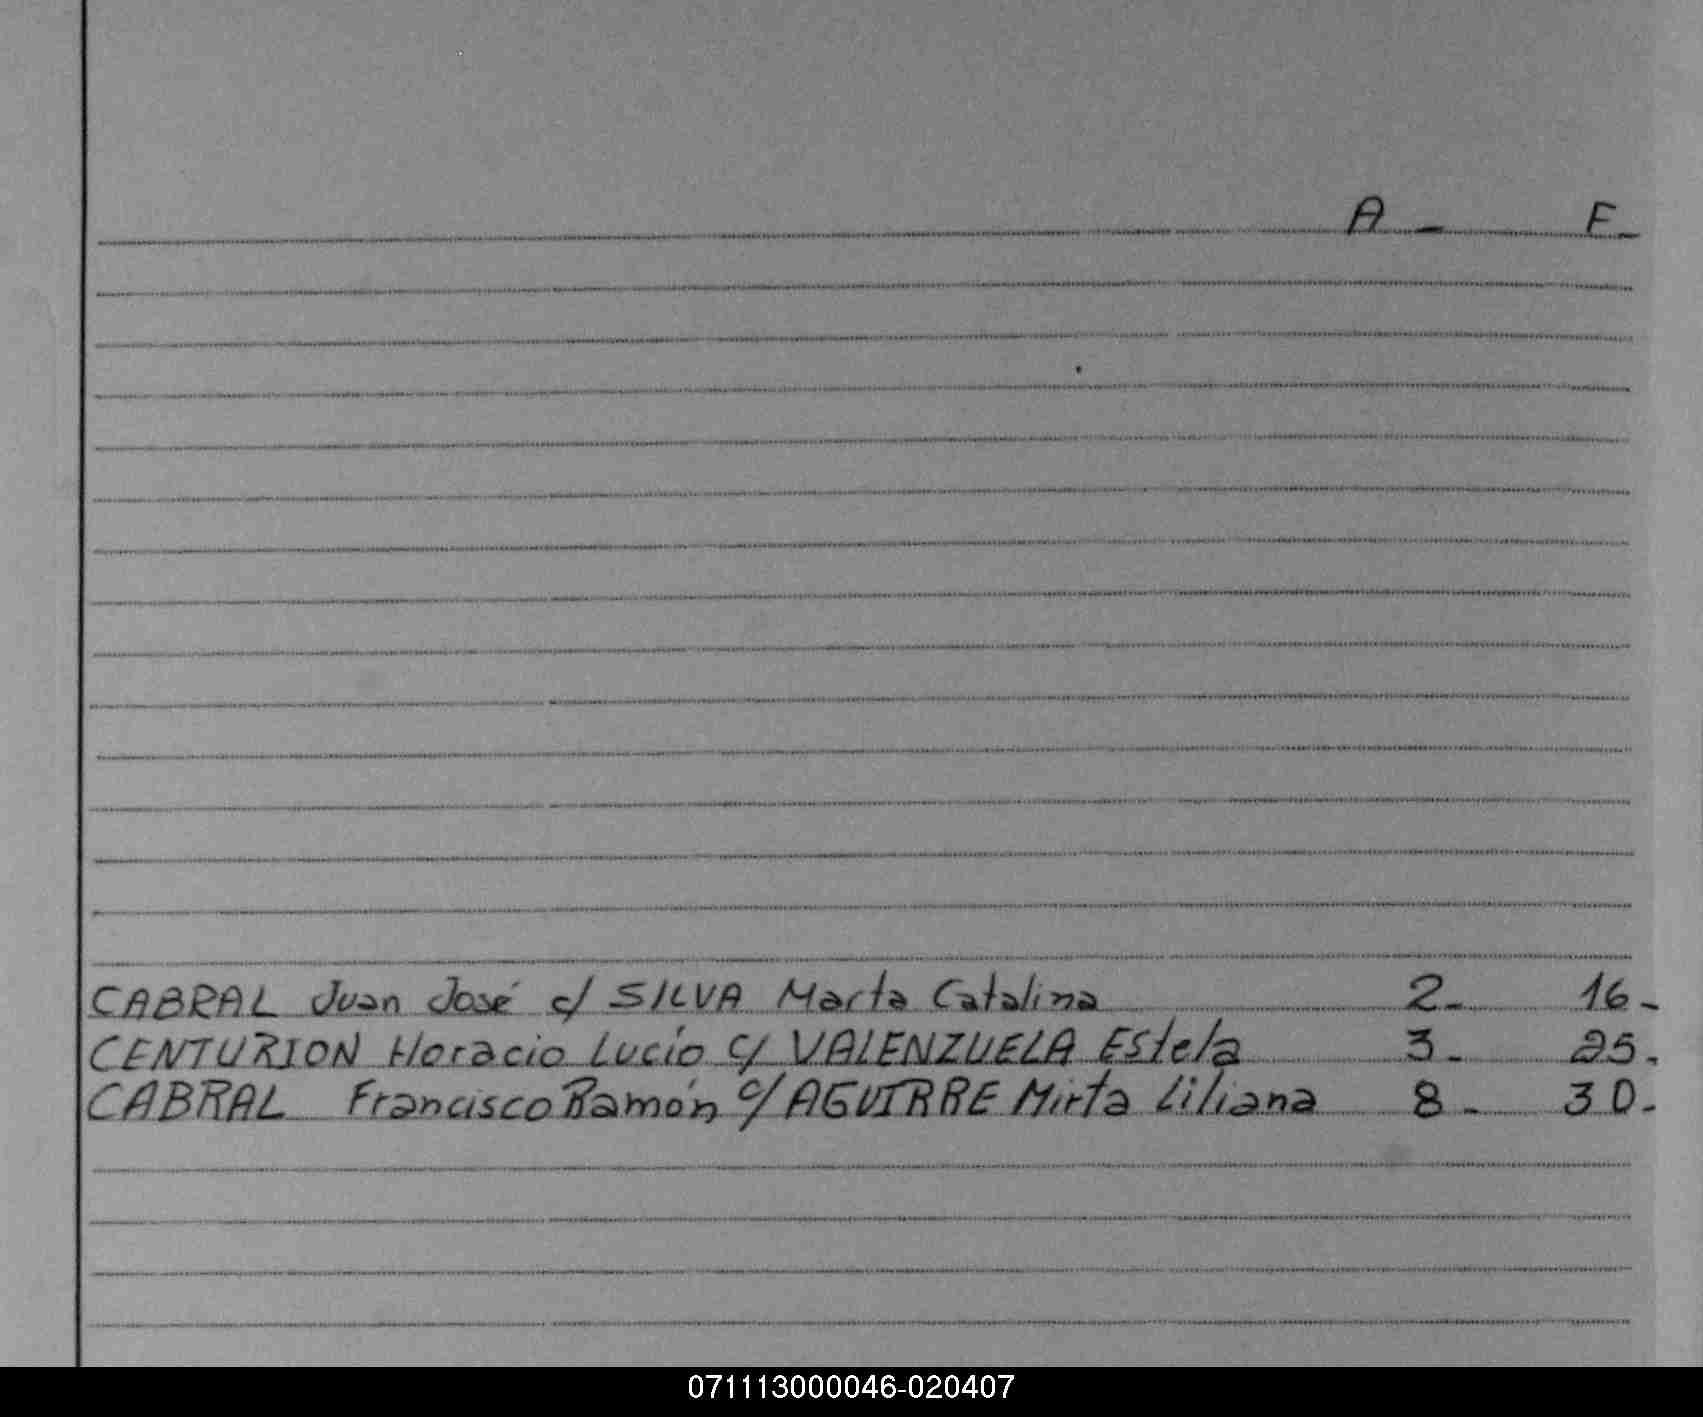 A - F -
CABRAL Juan José c/ SILVA Marta Catalina 2- 16-
CENTURION Horacio Lucío c/ VALENZUELA Estela 3- 25.
CABRAL Francisco Ramón c/ AGUIRRE Mirta Liliana 8- 30-
071113000046-020407